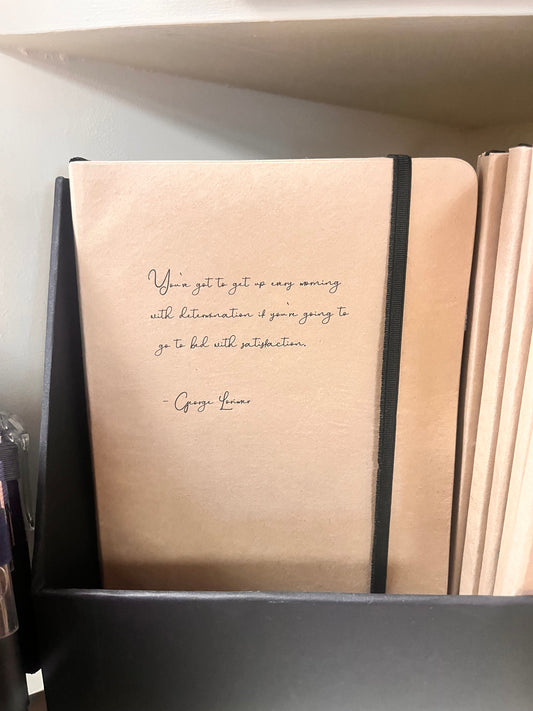 You've got to get up every morning
with determination if you're going to
go to bed with satisfaction.
- George Lorimer